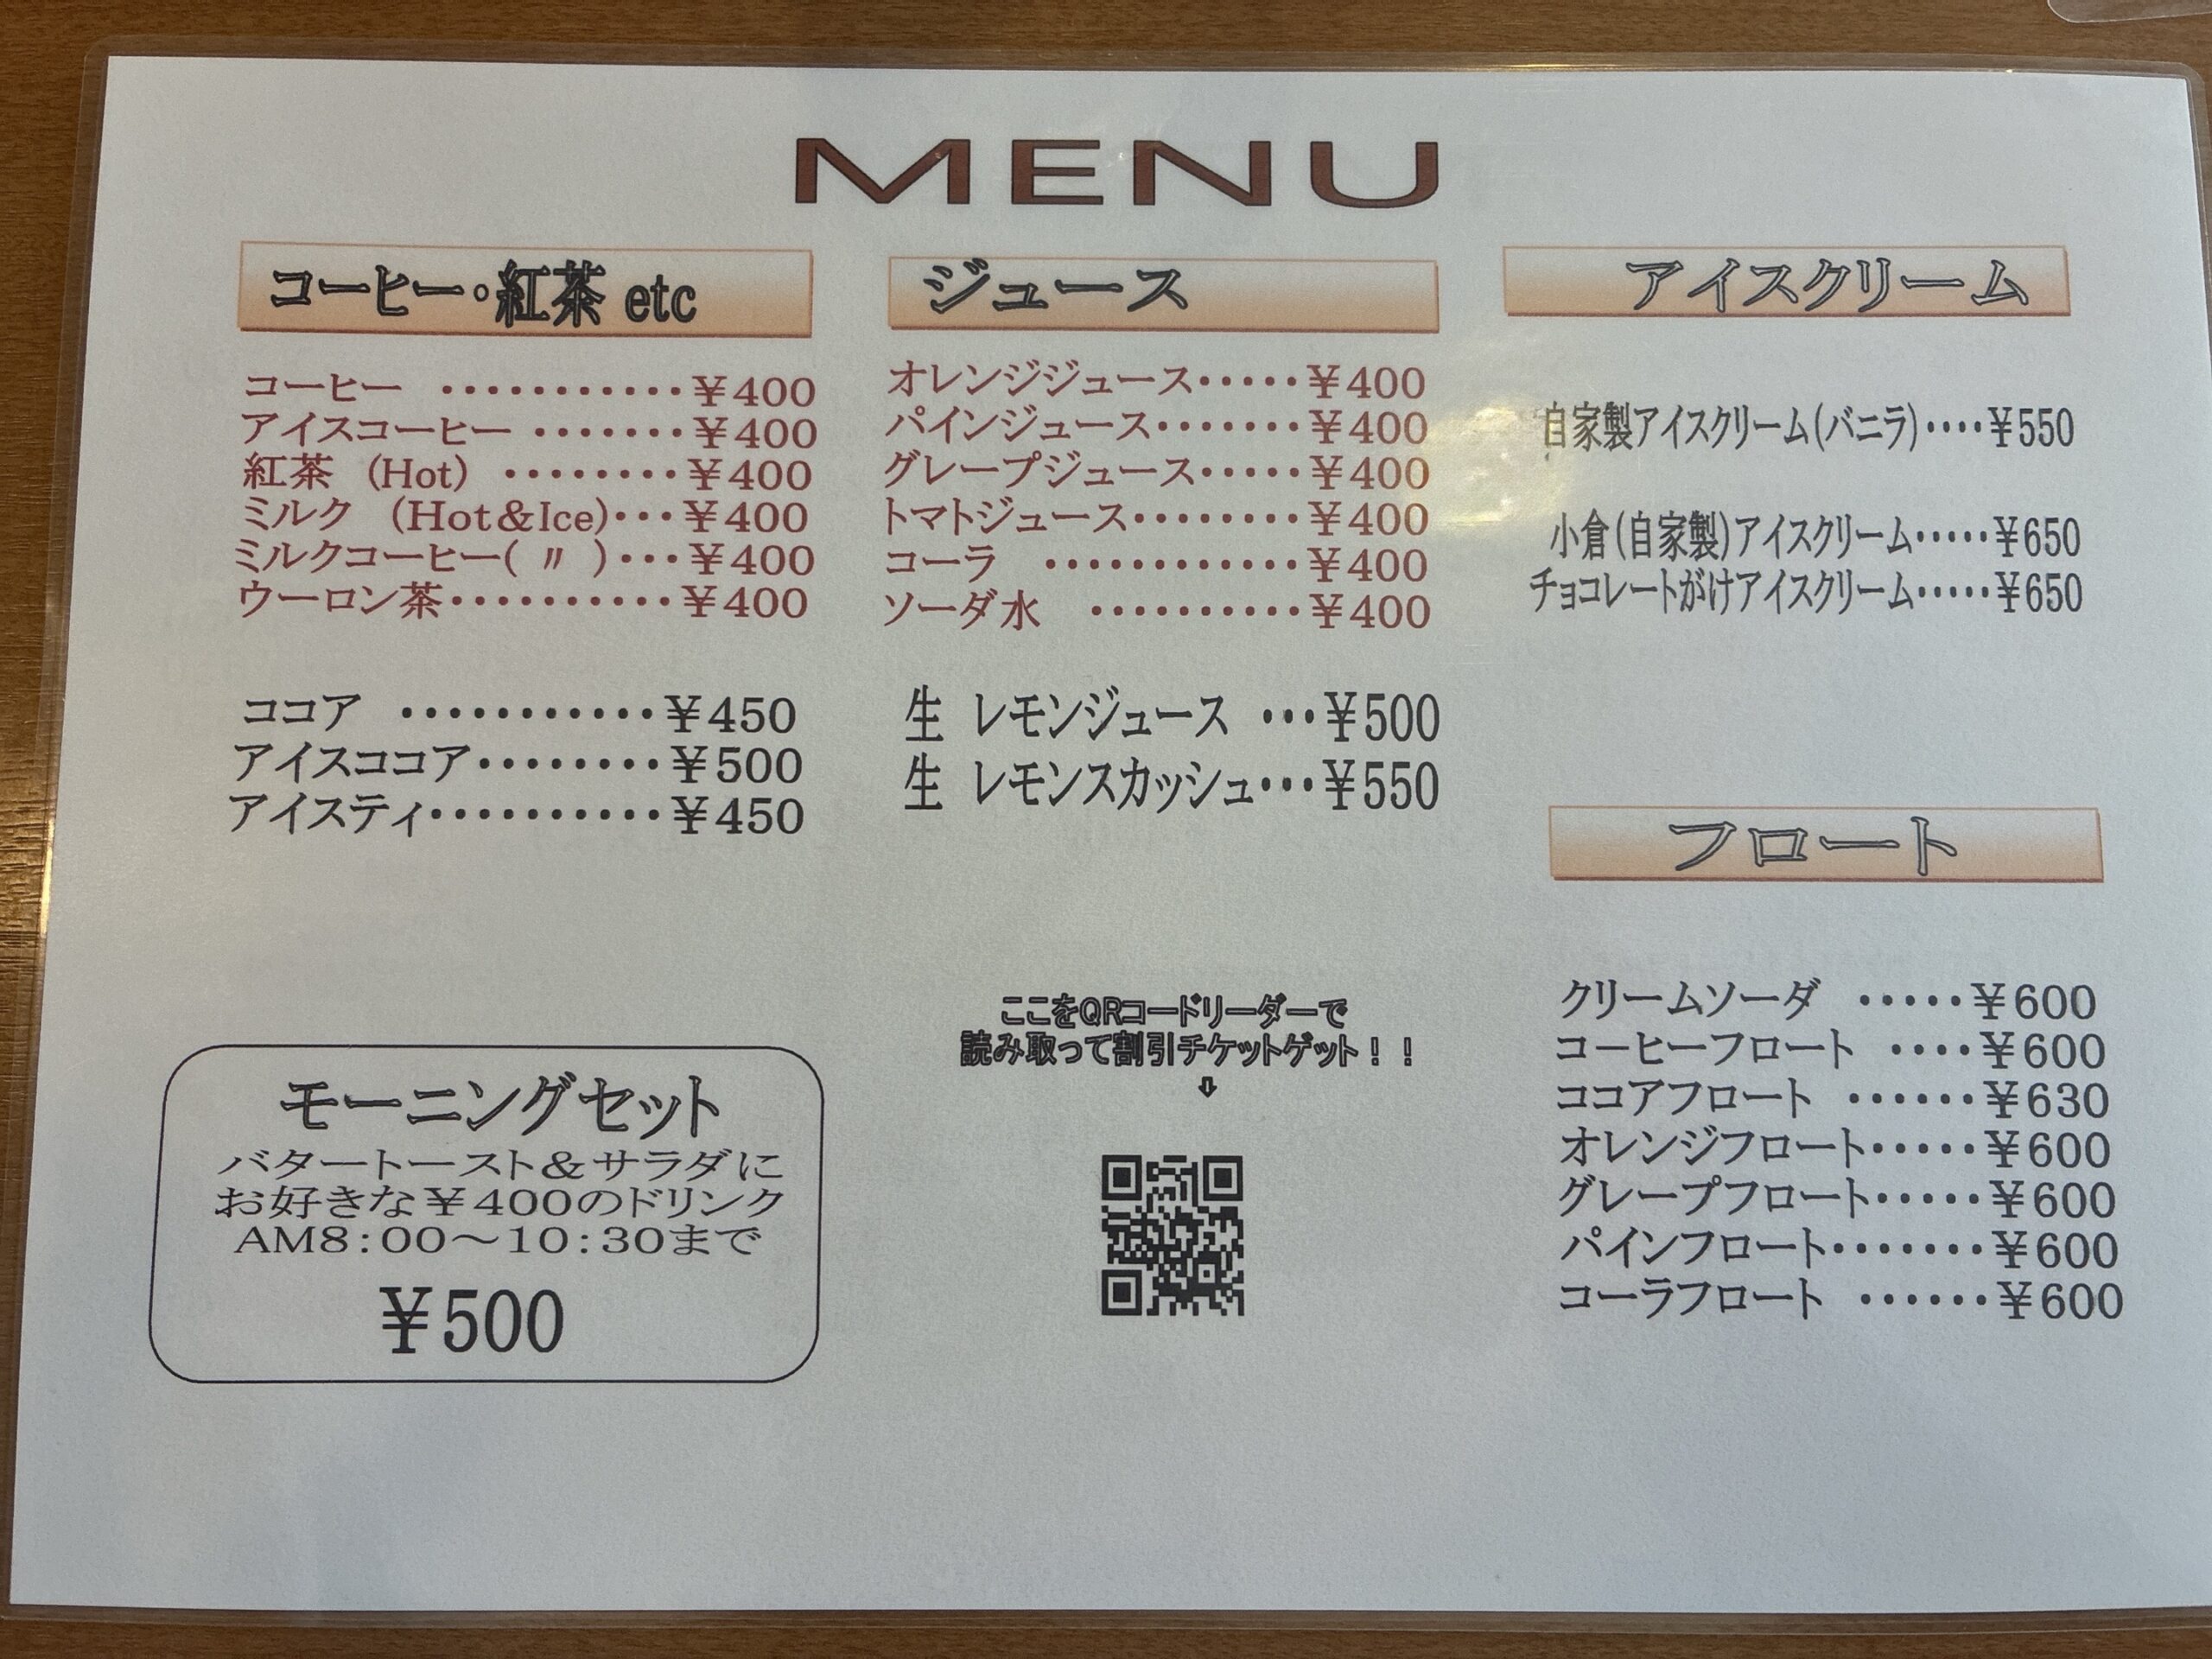 MENU
コーヒー・紅茶 etc
コーヒー ・・・・・・・・・・・￥400
アイスコーヒー ・・・・・・・￥400
紅茶 (Hot) ・・・・・・・・￥400
ミルク (Hot&Ice)・・・￥400
ミルクコーヒー( 〃 )・・・￥400
ウーロン茶・・・・・・・・・・￥400
ココア ・・・・・・・・・・・￥450
アイスココア・・・・・・・・￥500
アイスティ・・・・・・・・・・￥450
モーニングセット
バタートースト&サラダに
お好きな￥400のドリンク
AM8:00～10:30まで
￥500
ジュース
オレンジジュース・・・・・￥400
パインジュース・・・・・・・￥400
グレープジュース・・・・・￥400
トマトジュース・・・・・・・・￥400
コーラ ・・・・・・・・・・・・￥400
ソーダ水 ・・・・・・・・・・￥400
生 レモンジュース ・・・￥500
生 レモンスカッシュ・・・￥550
ここをQRコードリーダーで
読み取って割引チケットゲット！！
⇩
アイスクリーム
自家製アイスクリーム(バニラ)・・・・￥550
小倉(自家製)アイスクリーム・・・・・￥650
チョコレートがけアイスクリーム・・・・・￥650
フロート
クリームソーダ ・・・・・￥600
コーヒーフロート ・・・・￥600
ココアフロート ・・・・・・￥630
オレンジフロート・・・・・￥600
グレープフロート・・・・・￥600
パインフロート・・・・・・・￥600
コーラフロート ・・・・・・￥600